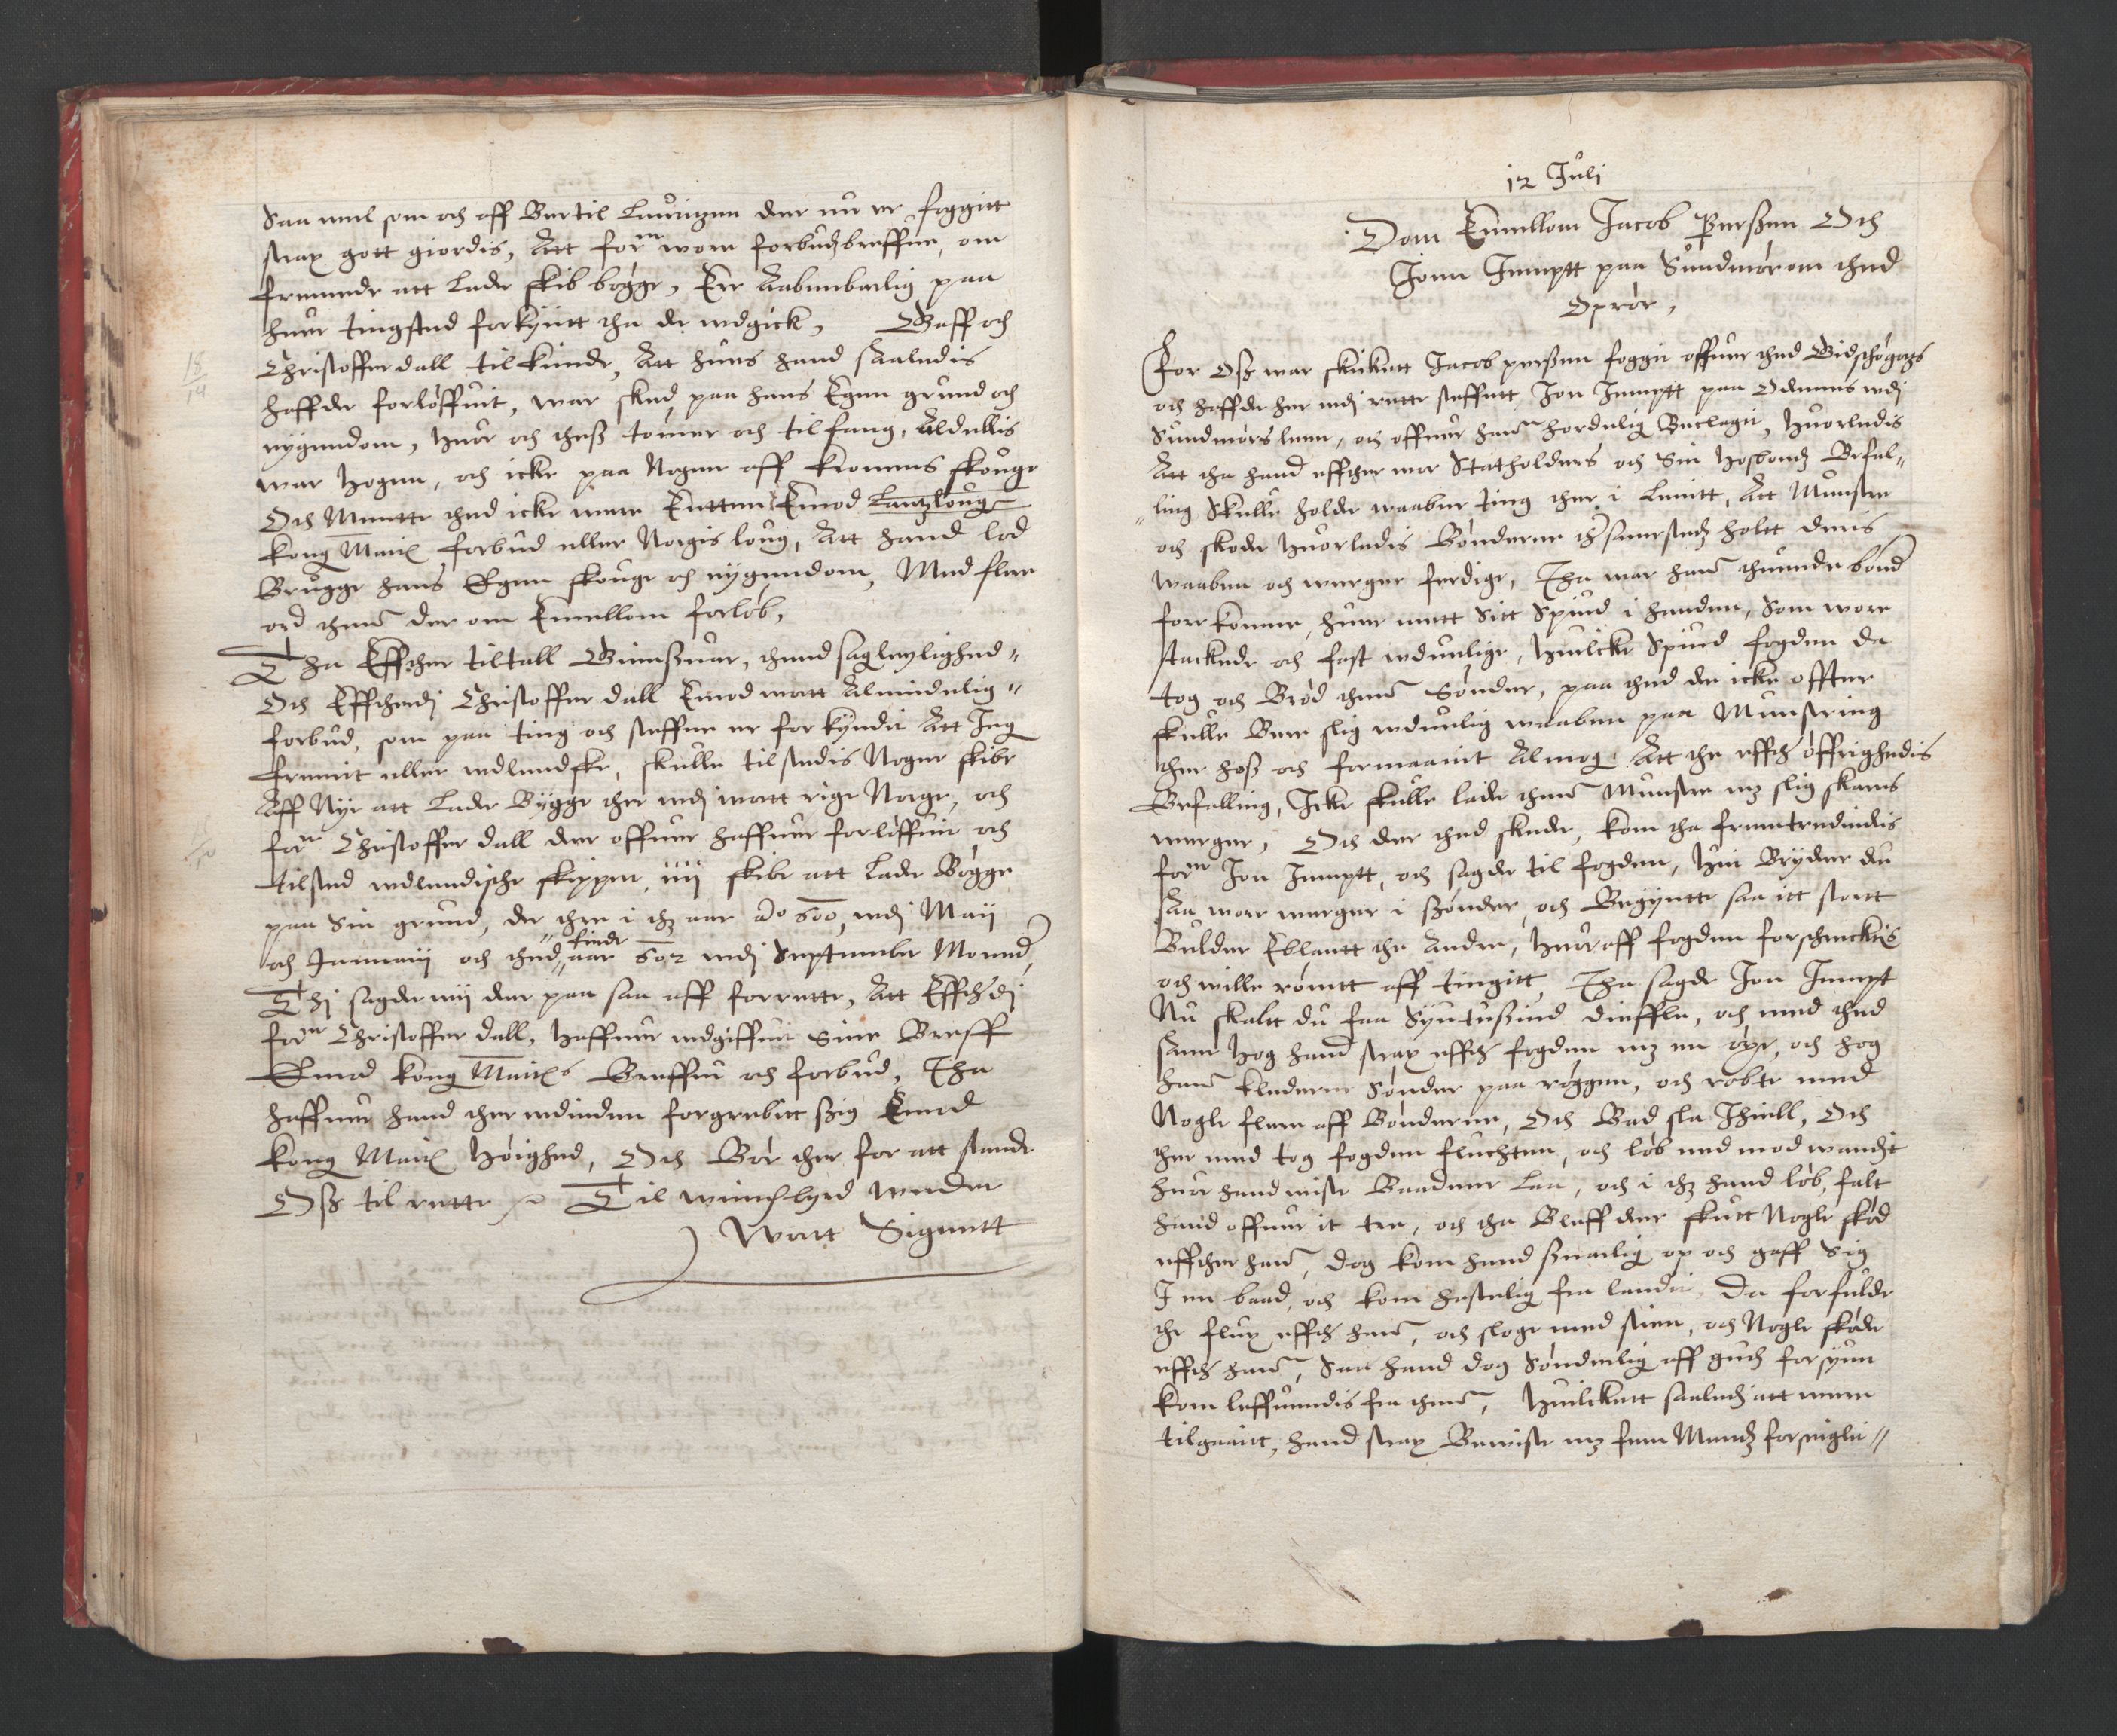 Saa vel som och aff Bertil Lauritzen der nu er foggitt
strax gott giordis, Att forne wore forbudz breffue, om
fremmede att lade skib bögge, Err Aabenbarlig paa
huer tingsted forkyntt tha de wdgick, Gaff och
Christoffer dall tilkiende, Att huis hand saaledis
haffde forlöffuit, war skeed paa hans Egen grund och
eygendom, huor och thess tömer och tilfang, Aldellis
war hogen, och icke paa Nogen aff kronens skouge
Och Meente thed icke were Enttenn Emod Landzloug
kong Maiets forbud eller Norgis loug, Att hand lod
Brugge hans Egen skouge och eygendom, Med flere
ord them der om Emellom forlöb,
Tha Effther tiltall Giensuar, thend sag leylighed
Och Effterdj Christoffer dall Emod wortt Almindelig
forbud, som paa ting och steffne er forkyndit Att Ing
fremit eller wdlendske, skulle tilstedis Noger skibe
Aff Nye att lade Bygge her wdj wortt rige Norge, och
forne Christoffer dall der offuer haffuer forlöffuit och
tilsted wdlendische skipper, iiij skibe att lade Bögge
paa Sin grund, de thre i thz aar Ao 600, wdj Maij
och Junnij och thed fierde aar 602 wdj September Maaned,
Thj sagde wij der paa saa aff for rette, Att Effterdj
forne Christoffer dall, haffuer wdgiffuit Sine Breff
Emod kong Maiets Breffue och forbud, Tha
haffuer hand ther wdinden forgrebitt ssig Emod
kong Maiets Höighed, Och Bör ther for att stande
Oss til rette Til windisbyrd wnder
Wortt Signett
12 Juli
Dom Emellom Jacob Perssen Och
Jonn Jemptt paa Sundmör om thed
Oprör,
For Oss war skickett Jacob perssen foggit offuer thed Gidschögodz
och haffde her wdj rette steffnett Jon Jemptt paa Ödennes wdj
Sundmörs leen, och offuer hanem hordelig Beclagit, huorledis
Att tha hand effther wor Statholders och Sin Hosbondz Befal
ling Skulle holde waaben ting ther i leenitt, Att Munstre
och skode huorledis Bönderne thersamestedz holtt deris
waaben och werger ferdige, Tha war hanem thuende bönder
forekomne, huer mett Sitt Spiud i handen, Som wore
stackede och fast wduelige, huilcke Spiud fogden da
tog och Bröd them Sönder, paa thed de icke offtere
skulle Bere slig wduelig waaben paa Munstring
ther hoss och formaanit Almog Att the effther öffrighedis
Befalling, Icke skulle lade them Munstre mz slig skarns
werger, Och der thed skede, kom tha fremtredindis
forne Jon Jemptt, och sagde til fogden, Hui Bryder du
Saa wore werger i Sönder, och Begyntte saa itt stortt
Bulder Eblantt the Andre, huor aff fogden forschrecktis
och wille römtt aff tingitt, Tha sagde Jon Jempt
Nu skaltt du faa Syutusind dieffle, och med thed
same hog hand strax effther fogden mz en öxe, och hog
hanem klederne Sönder paa röggen, och robte med
Nogle flere aff Bönderne, Och Bad sla Ihiell, Och
ther med tog fogden fluchten, och löb ned mod wandit
huor hand wiste Baadene laa, och i thz hand löb, falt
hand offuer it tre, och tha Bleff der skutt Nogle skod
effther hanem, dog kom hand snarlig op och gaff Sig
I en baad, och kom hastelig fra landit, Da forfulde
the flux effther hanem, och sloge med stien, och Nogle skode
effther hanem, Saa hand dog Sönderlig aff gudz forsyun
kom leffuendis fra them, Huilckett saaledz att were
tilgaait, hand strax Bewiste mz fem Mendz forseiglit